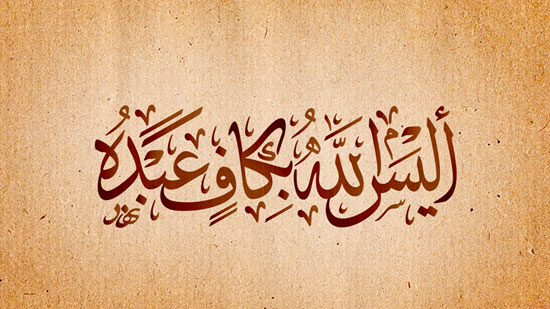 أليس اللهُ بكافٍ عبدَهُ